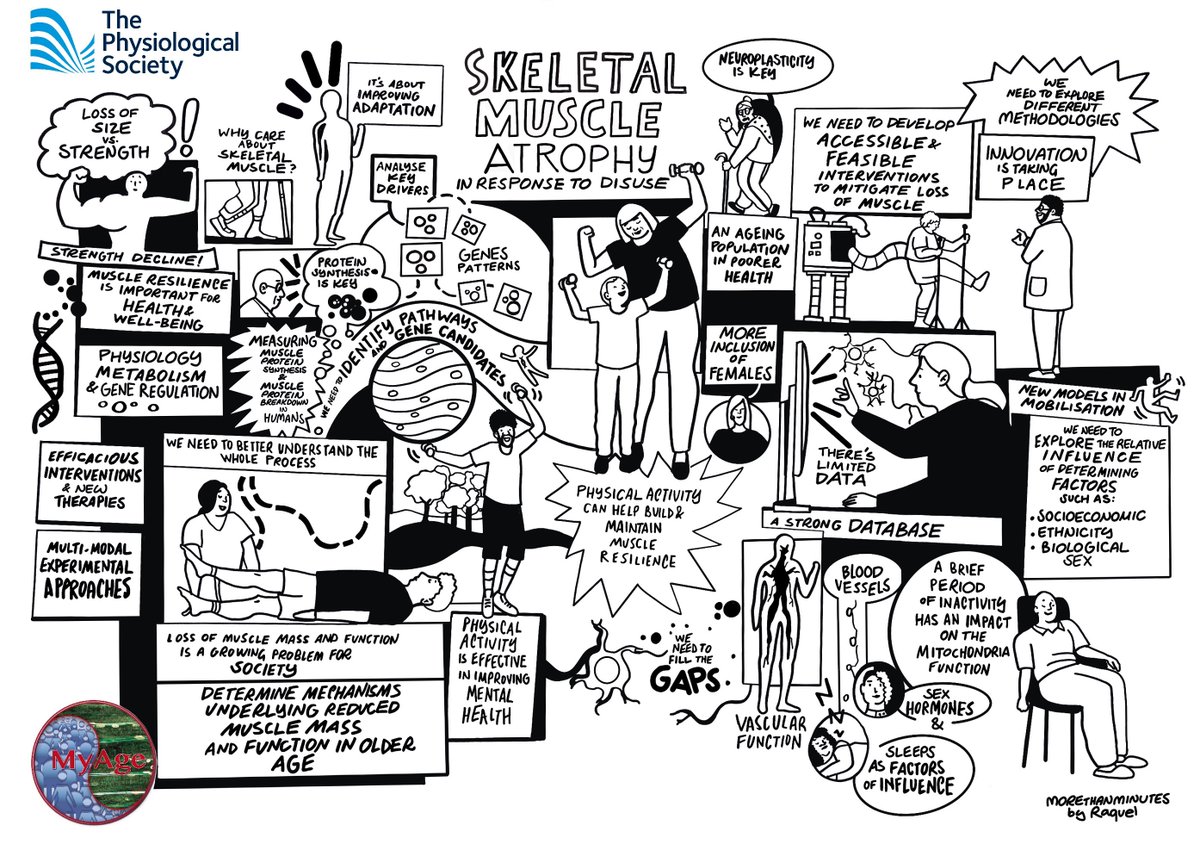 The
Physiological
Society
SKELETAL
MUSCLE
ATROPHY
IN RESPONSE TO DISUSE
LOSS OF
SIZE
VS.
STRENGTH
!
STRENGTH DECLINE!
WHY CARE
ABOUT
SKELETAL
MUSCLE?
IT'S ABOUT
IMPROVING
ADAPTATION
ANALYSE
KEY
DRIVERS
GENES
PATTERNS
MUSCLE RESILIENCE
IS IMPORTANT FOR
HEALTH &
WELL-BEING
PROTEIN
SYNTHESIS
IS KEY
PHYSIOLOGY
METABOLISM
& GENE REGULATION
MEASURING
MUSCLE
PROTEIN
SYNTHESIS
&
MUSCLE
PROTEIN
BREAKDOWN
IN
HUMANS
WE NEED TO IDENTIFY PATHWAYS
AND GENE CANDIDATES
EFFICACIOUS
INTERVENTIONS
& NEW
THERAPIES
MULTI-MODAL
EXPERIMENTAL
APPROACHES
WE NEED TO BETTER UNDERSTAND THE
WHOLE PROCESS
LOSS OF MUSCLE MASS AND FUNCTION
IS A GROWING PROBLEM FOR
SOCIETY
DETERMINE MECHANISMS
UNDERLYING REDUCED
MUSCLE MASS
AND FUNCTION IN OLDER
AGE
MyAge
PHYSICAL
ACTIVITY
IS EFFECTIVE
IN IMPROVING
MENTAL
HEALTH
PHYSICAL ACTIVITY
CAN HELP BUILD &
MAINTAIN
MUSCLE
RESILIENCE
WE
NEED TO
FILL THE
GAPS.
NEUROPLASTICITY
IS KEY
AN AGEING
POPULATION
IN POORER
HEALTH
MORE
INCLUSION
OF
FEMALES
WE NEED TO DEVELOP
ACCESSIBLE &
FEASIBLE
INTERVENTIONS
TO MITIGATE LOSS
OF MUSCLE
WE
NEED TO EXPLORE
DIFFERENT
METHODOLOGIES
INNOVATION
IS TAKING
PLACE
THERE'S
LIMITED
DATA
A STRONG DATABASE
NEW MODELS IN
MOBILISATION
WE NEED TO
EXPLORE THE RELATIVE
INFLUENCE
OF DETERMINING
FACTORS
SUCH AS:
• SOCIOECONOMIC
• ETHNICITY
• BIOLOGICAL
SEX
VASCULAR
FUNCTION
BLOOD
VESSELS
A BRIEF
PERIOD
OF INACTIVITY
HAS AN IMPACT
ON THE
MITOCHONDRIA
FUNCTION
SEX
HORMONES
&
SLEEPS
AS FACTORS
OF INFLUENCE
MORETHANMINUTES
by Raquel